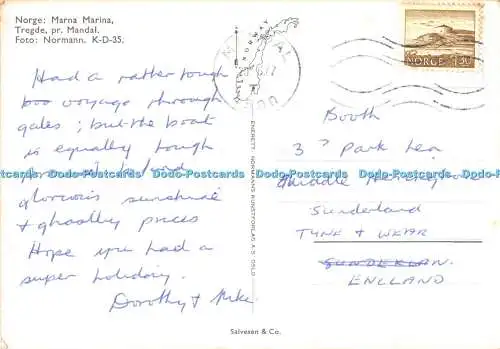 Norge: Marna Marina,
Tregde, pr. Mandal.
Foto: Normann. K-D-35.
NORWAY
NORGE 130
Had a rather tough
voyage through
gales; but the boat
is equally tough
glorious sunshine
& ghastly prices
Hope you had a
super holiday.
Dorothy & Mike.
ENERETT NORMANNS KUNSTFORLAG A.S. OSLO
Booth
3 Park Lea
Middle
Sunderland
TYNE & WEAR
SUNDERLAN.
ENGLAND
Dodo-Postcards Dodo-Postcards Dodo-Postcards Dodo-Postcards Dodo-Postcards Dodo-Postcards
Salvesen & Co.